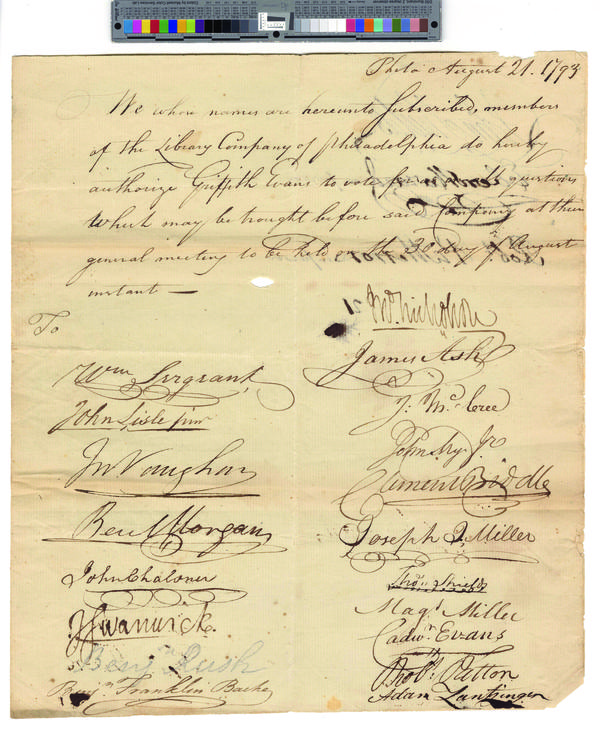 Phila August 21. 1793
We whose names are hereunto Subscribed, members
of the Library Company of Philadelphia do hereby
authorize Griffith Evans to vote for us on all questions
Which may be brought before said Company at their
general meeting to be held on the 30 day of August
instant —
To
Jno. Nicholson
James Ash
Wm Sergeant
J. McCree
John Lisle junr
Jno Vaughan
Clement Biddle
Benj Morgan
Joseph J. Miller
John Chaloner
Thos. Shields
Mags. Miller
J Swanwick.
Cadwr. Evans
Benjn Rush
Robt. Patton
Benjn Franklin Bache
Adam Lantzinger